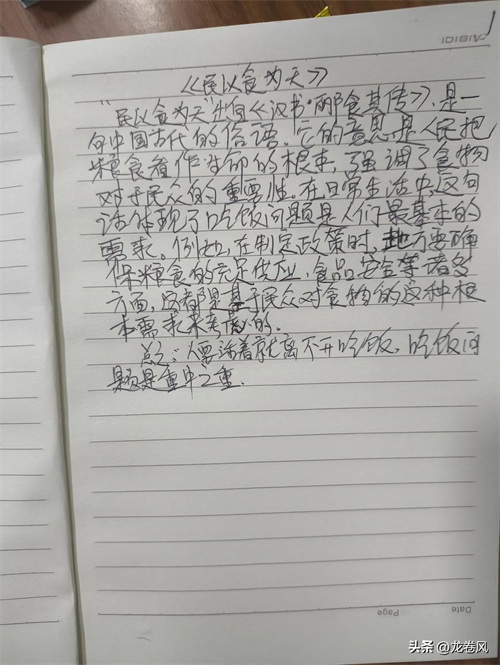 《民以食为天》
"民以食为天"出自《汉书·郦食其传》,是一
句中国古代的俗语。它的意思是人民把
粮食看作生命的根本,强调了食物
对于民众的重要性。在日常生活中,这句
话体现了吃饭问题是人们最基本的
需求。例如,在制定政策时,地方要确
保粮食的充足供应,食品安全等诸多
方面,这都是基于民众对食物的这种根
本需求来考虑的。
总之:人要活着就离不开吃饭,吃饭问
题是重中之重.
Date
Page
头条 @龙卷风